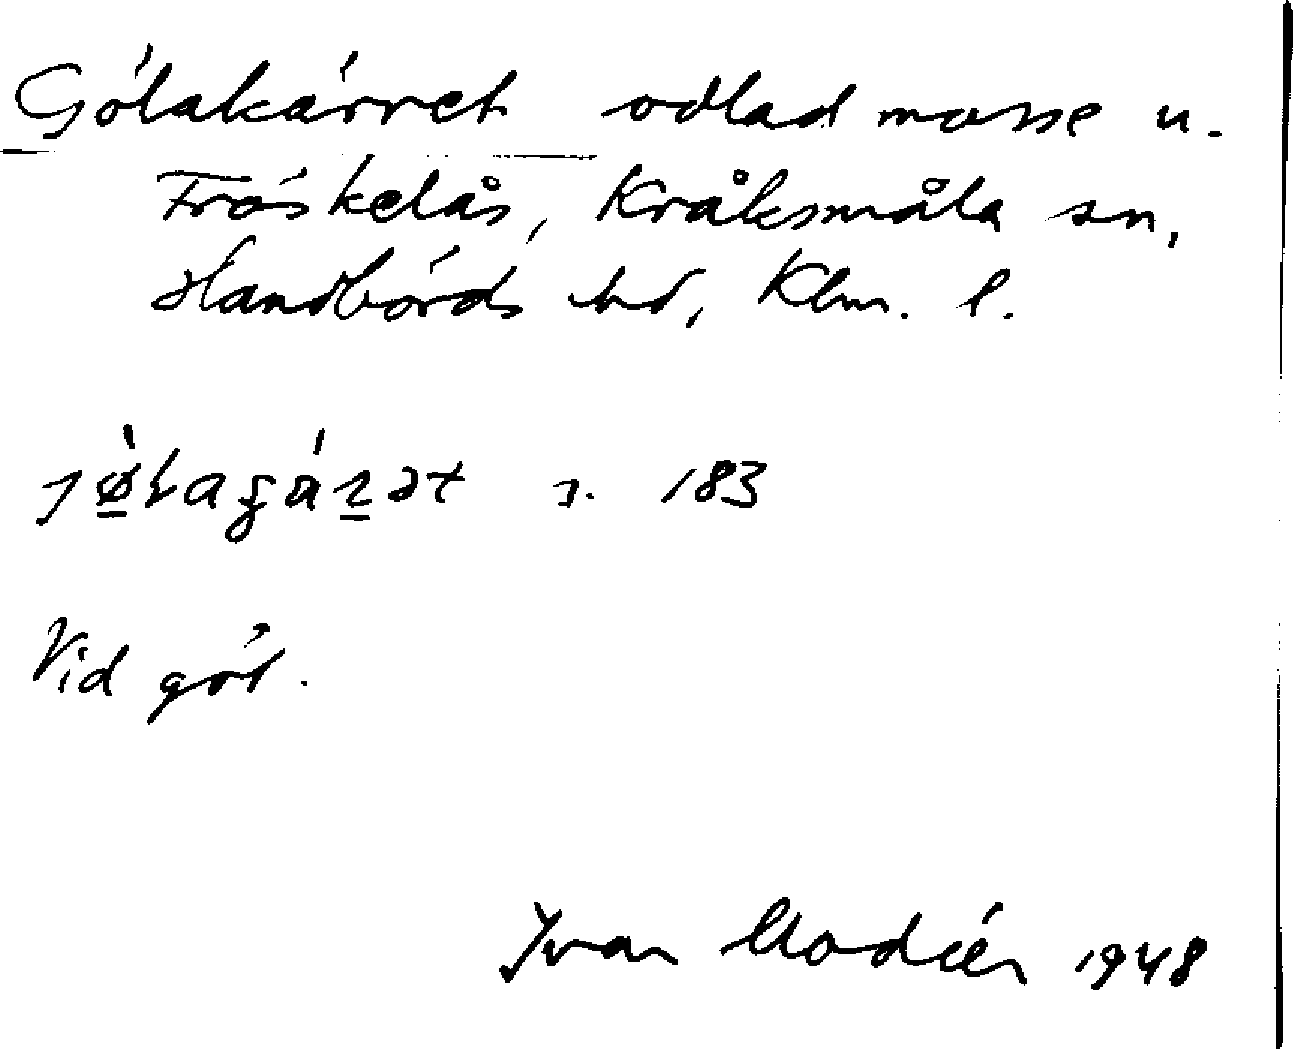 Gölakärret odlad mosse u.
Fröskelås, Kråksmåla sn,
Handbörds hd, Klm. l.
s. 183
Vid göl.
Ivar Modéer 1948